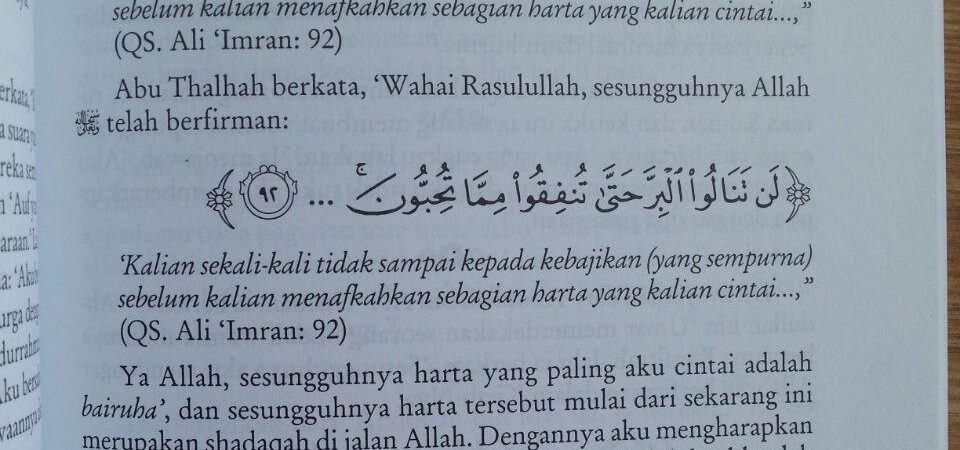 sebelum kalian menafkahkan sebagian harta yang kalian cintai...,”
(QS. Ali ‘Imran: 92)
Abu Thalhah berkata, ‘Wahai Rasulullah, sesungguhnya Allah
telah berfirman:
﴿لَن تَنَالُوا۟ ٱلْبِرَّ حَتَّىٰ تُنفِقُوا۟ مِمَّا تُحِبُّونَ ۚ ... ٩٢﴾
‘Kalian sekali-kali tidak sampai kepada kebajikan (yang sempurna)
sebelum kalian menafkahkan sebagian harta yang kalian cintai...,”
(QS. Ali ‘Imran: 92)
Ya Allah, sesungguhnya harta yang paling aku cintai adalah
bairuha’, dan sesungguhnya harta tersebut mulai dari sekarang ini
merupakan shadaqah di jalan Allah. Dengannya aku mengharapkan